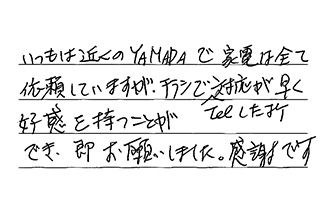 いつもは近くのYAMADAで家電は全て
依頼していますが、チラシで対応が早く
Telした所
好感を持つことが
でき、即お願いしました。感謝です